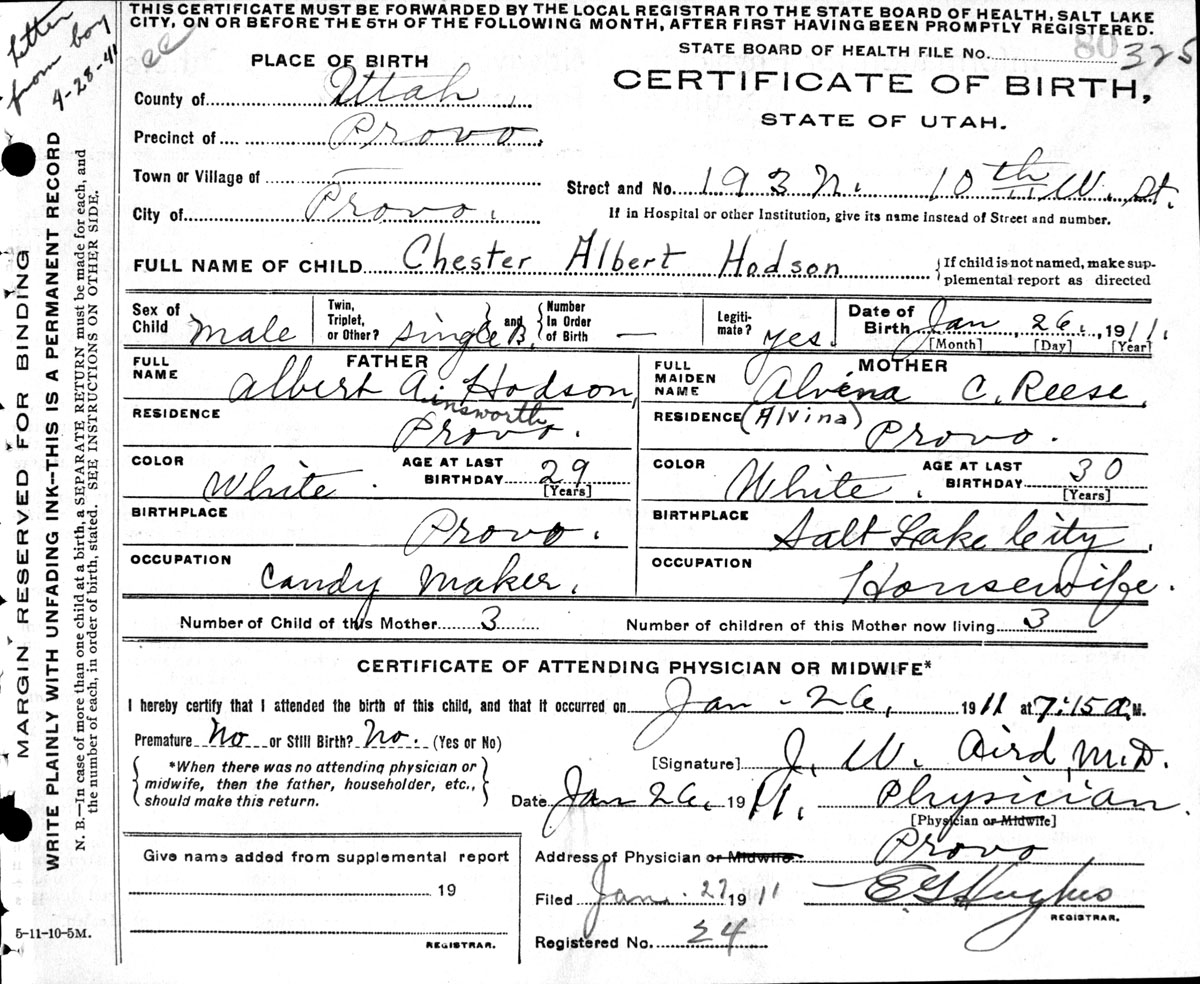 THIS CERTIFICATE MUST BE FORWARDED BY THE LOCAL REGISTRAR TO THE STATE BOARD OF HEALTH, SALT LAKE
CITY, ON OR BEFORE THE 5TH OF THE FOLLOWING MONTH, AFTER FIRST HAVING BEEN PROMPTLY REGISTERED.
Letter
from boy
4-28-41
MARGIN RESERVED FOR BINDING
WRITE PLAINLY WITH UNFADING INK—THIS IS A PERMANENT RECORD
N. B.—In case of more than one child at a birth, a SEPARATE RETURN must be made for each, and
the number of each, in order of birth, stated. SEE INSTRUCTIONS ON OTHER SIDE.
STATE BOARD OF HEALTH FILE No. 80 325
CERTIFICATE OF BIRTH,
STATE OF UTAH.
PLACE OF BIRTH
County of Utah
Precinct of Provo.
Town or Village of —
City of Provo.
Street and No. 193 N. 10th W. St.
If in Hospital or other Institution, give its name instead of Street and number.
FULL NAME OF CHILD Chester Albert Hodson
If child is not named, make sup-
plemental report as directed
Sex of Child male
Twin, Triplet, or Other? single B. and Number In Order of Birth —
Legiti-mate? yes.
Date of Birth Jan 26, 1911.
[Month] [Day] [Year]
FATHER
FULL NAME Albert A. Hodson,
insworth
RESIDENCE Provo.
COLOR White.
AGE AT LAST BIRTHDAY 29
[Years]
BIRTHPLACE Provo.
OCCUPATION Candy Maker.
MOTHER
FULL MAIDEN NAME Alvena C. Reese.
RESIDENCE (Alvina) Provo.
COLOR White.
AGE AT LAST BIRTHDAY 30
[Years]
BIRTHPLACE Salt Lake City,
OCCUPATION Housewife.
Number of Child of this Mother 3
Number of children of this Mother now living 3
CERTIFICATE OF ATTENDING PHYSICIAN OR MIDWIFE*
I hereby certify that I attended the birth of this child, and that it occurred on Jan. 26, 1911 at 7:15 a. M.
Premature No or Still Birth? No. (Yes or No)
*When there was no attending physician or
midwife, then the father, householder, etc.,
should make this return.
[Signature] J. W. Aird, M.D.
Date Jan 26, 1911. Physician.
[Physician or Midwife]
Give name added from supplemental report
19
REGISTRAR.
Address of Physician or Midwife Provo
Filed Jan. 27 1911 E G Hughes
REGISTRAR.
Registered No. 24
5-11-10-5M.